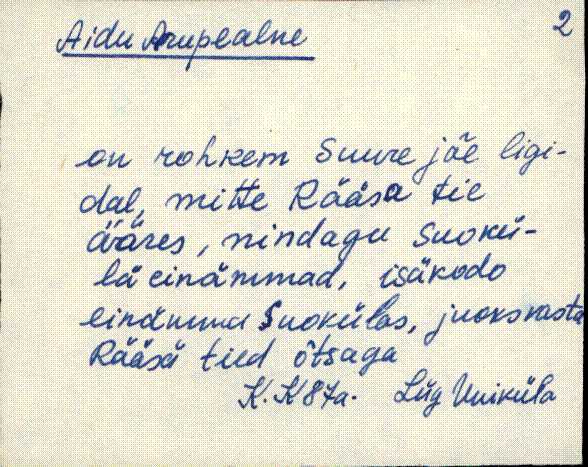 2
Aidu Arupealne
on rohkem Suure jõe ligi-
dal, mitte Rääsa tie
ääres, nindagu Suokü-
lä einämmad, isäkodo
einämmad Suokülas, juoksvasta
Rääsä tied õtsaga
K. K 87a. Lüg Uniküla